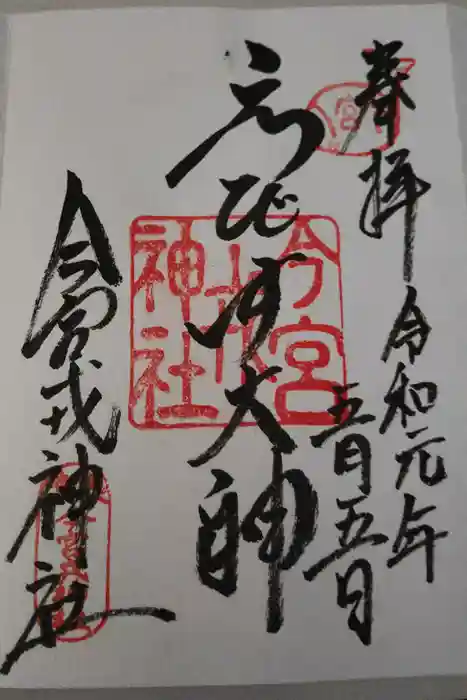 奉拝
令和元年
五月五日
ゑびす大神
今宮戎神社
今宮
戎
神社
宮